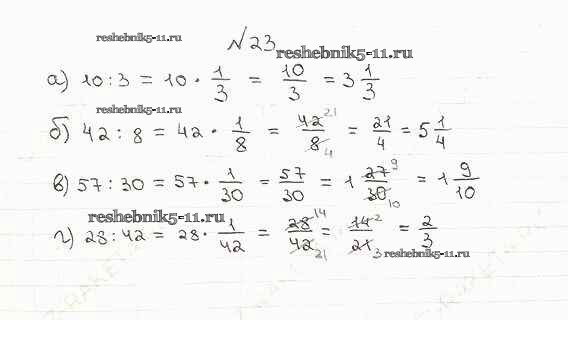 reshebnik5-11.ru
№23
reshebnik5-11.ru
а) 10 : 3 = 10 · 1/3 = 10/3 = 3 1/3
reshebnik5-11.ru
б) 42 : 8 = 42 · 1/8 = 42 21/8 4 = 21/4 = 5 1/4
в) 57 : 30 = 57 · 1/30 = 57/30 = 1 27 9/30 10 = 1 9/10
reshebnik5-11.ru
г) 28 : 42 = 28 · 1/42 = 28 14/42 21 = 14 2/21 3 = 2/3
reshebnik5-11.ru